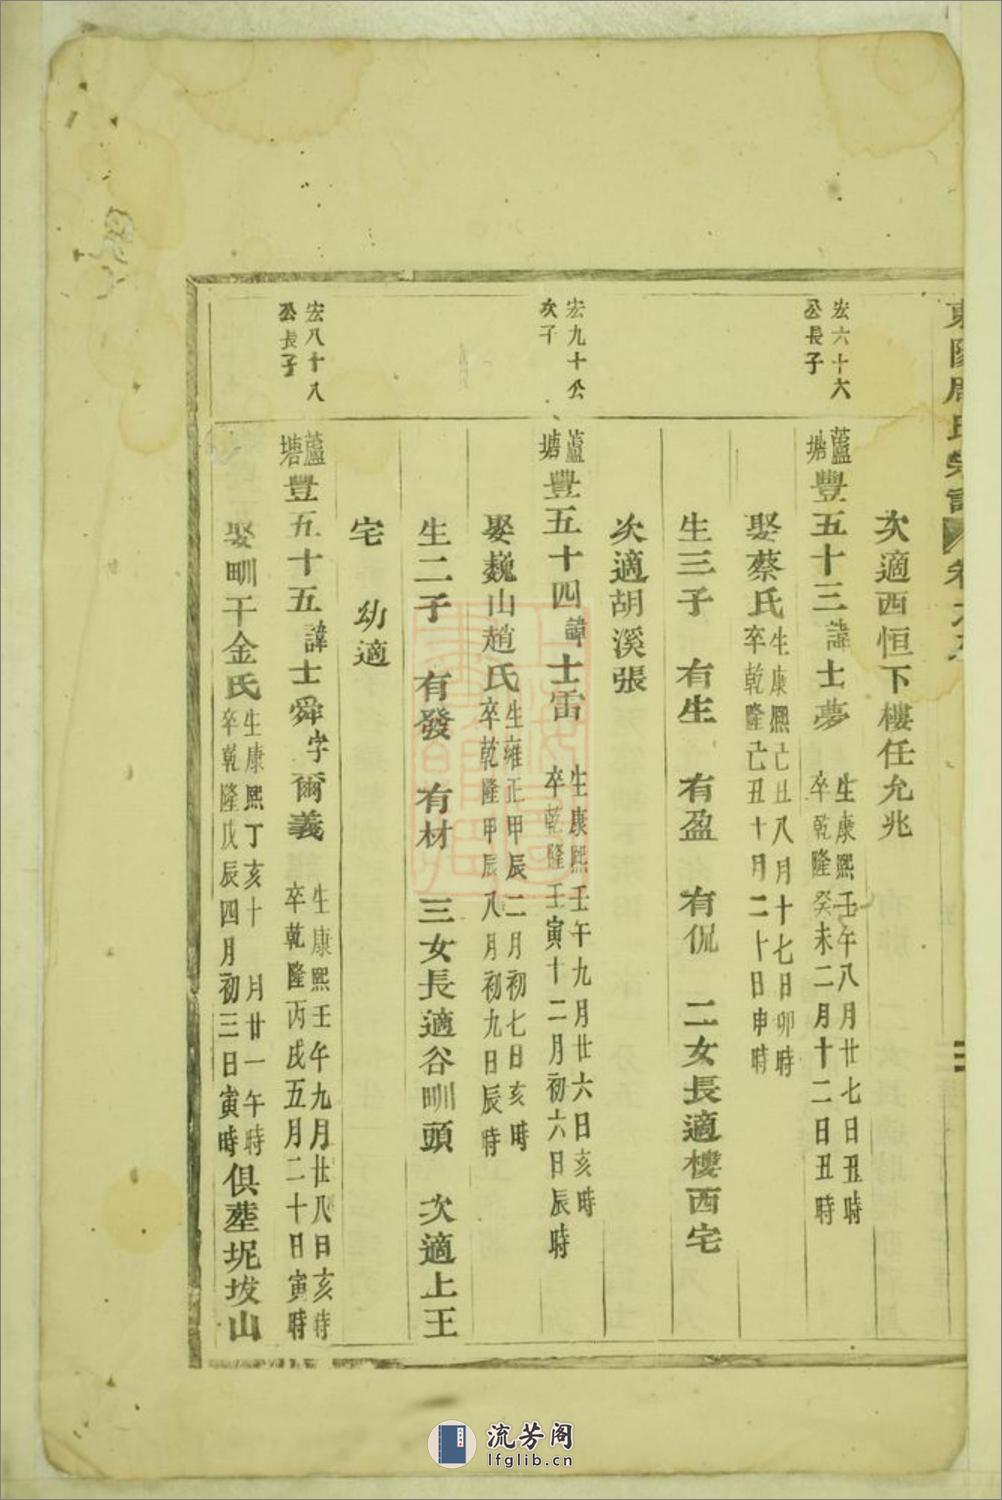 東陽周氏宗譜 卷
次適西恒下樓任允兆
宏六十六
公長子
蘆塘豐五十三諱士夢 生康熙壬午八月廿七日丑時
卒乾隆癸未二月十二日丑時
娶蔡氏生康熙己丑八月十七日卯時
卒乾隆己丑十月二十日申時
生三子 有生 有盈 有侃 二女長適樓西宅
次適胡溪張
宏九十公
次子
蘆塘豐五十四諱士雷 生康熙壬午九月廿六日亥時
卒乾隆壬寅十二月初六日辰時
娶巍山趙氏生雍正甲辰二月初七日亥時
卒乾隆甲辰八月初九日辰時
生二子 有發 有材 三女長適谷甽頭 次適上王
宅 幼適
宏八十八
公長子
蘆塘豐五十五諱士舜字爾義 生康熙壬午九月廿八日亥時
卒乾隆丙戌五月二十日寅時
娶甽干金氏生康熙丁亥十 月廿一午時
卒乾隆戊辰四月初三日寅時
俱塟坭坺山
流芳阁
lfglib.cn